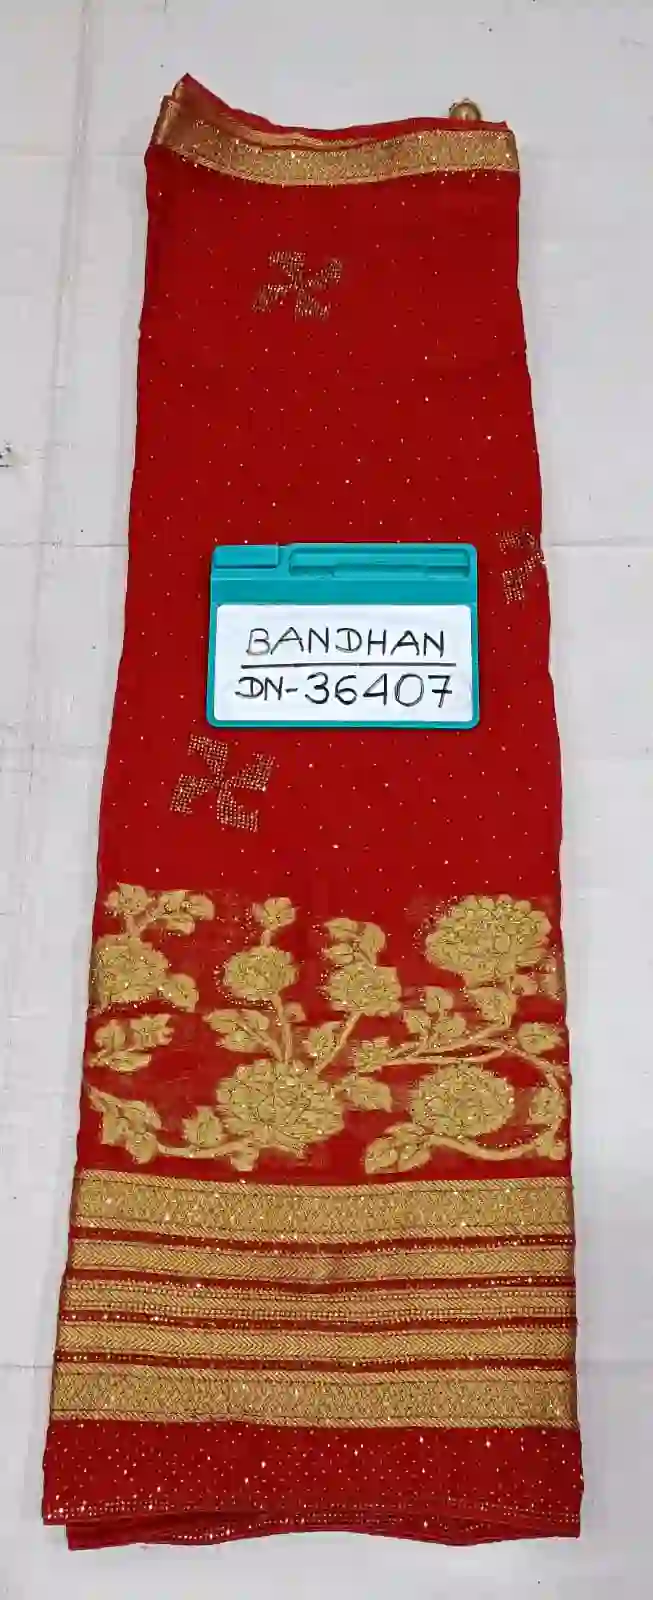 BANDHAN
DN-36407